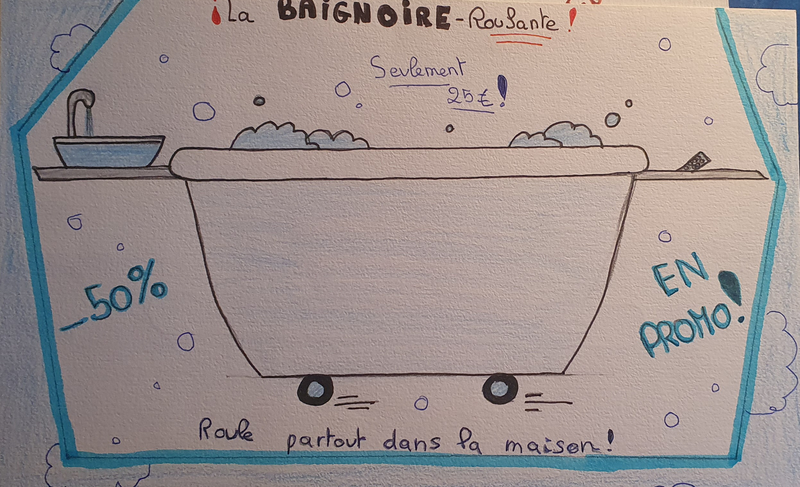 ¡La BAIGNOIRE-Roulante!
Seulement
25€!
-50%
EN
PROMO!
Roule partout dans la maison!